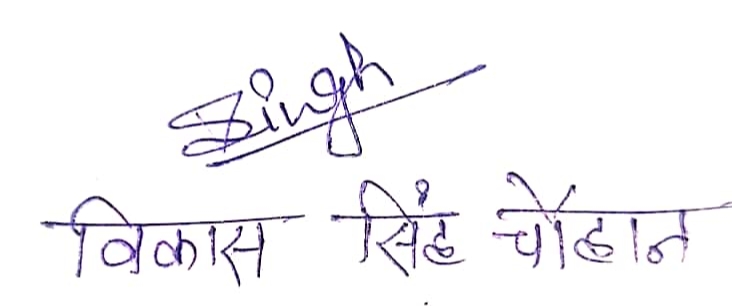 Singh
विकास सिंह चौहान